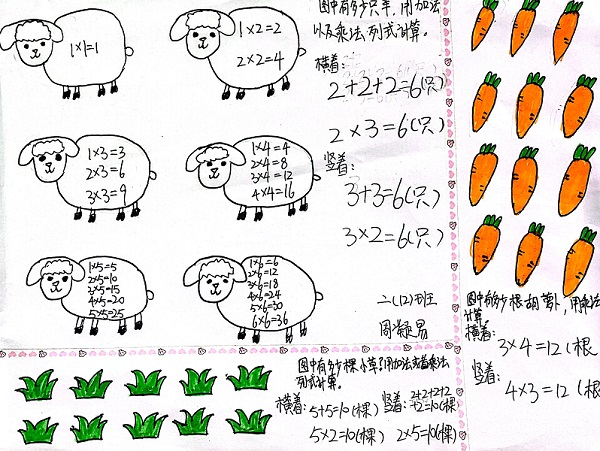 1×1=1
1×2=2
2×2=4
1×3=3
2×3=6
3×3=9
1×4=4
2×4=8
3×4=12
4×4=16
1×5=5
2×5=10
3×5=15
4×5=20
5×5=25
1×6=6
2×6=12
3×6=18
4×6=24
5×6=30
6×6=36
图中有多少只羊,用加法
以及乘法,列式计算。
横着:
2+2+2=6(只)
2×3=6(只)
竖着:
3+3=6(只)
3×2=6(只)
二(12)班
周凝易
图中有多少根胡萝卜,用乘法
计算。
横着:
3×4=12(根
竖着:
4×3=12(根
图中有多少棵小草?用加法或者乘法
列式计算。
横着:5+5=10(棵)
5×2=10(棵)
竖着:2+2+2+2
+2=10(棵)
2×5=10(棵)